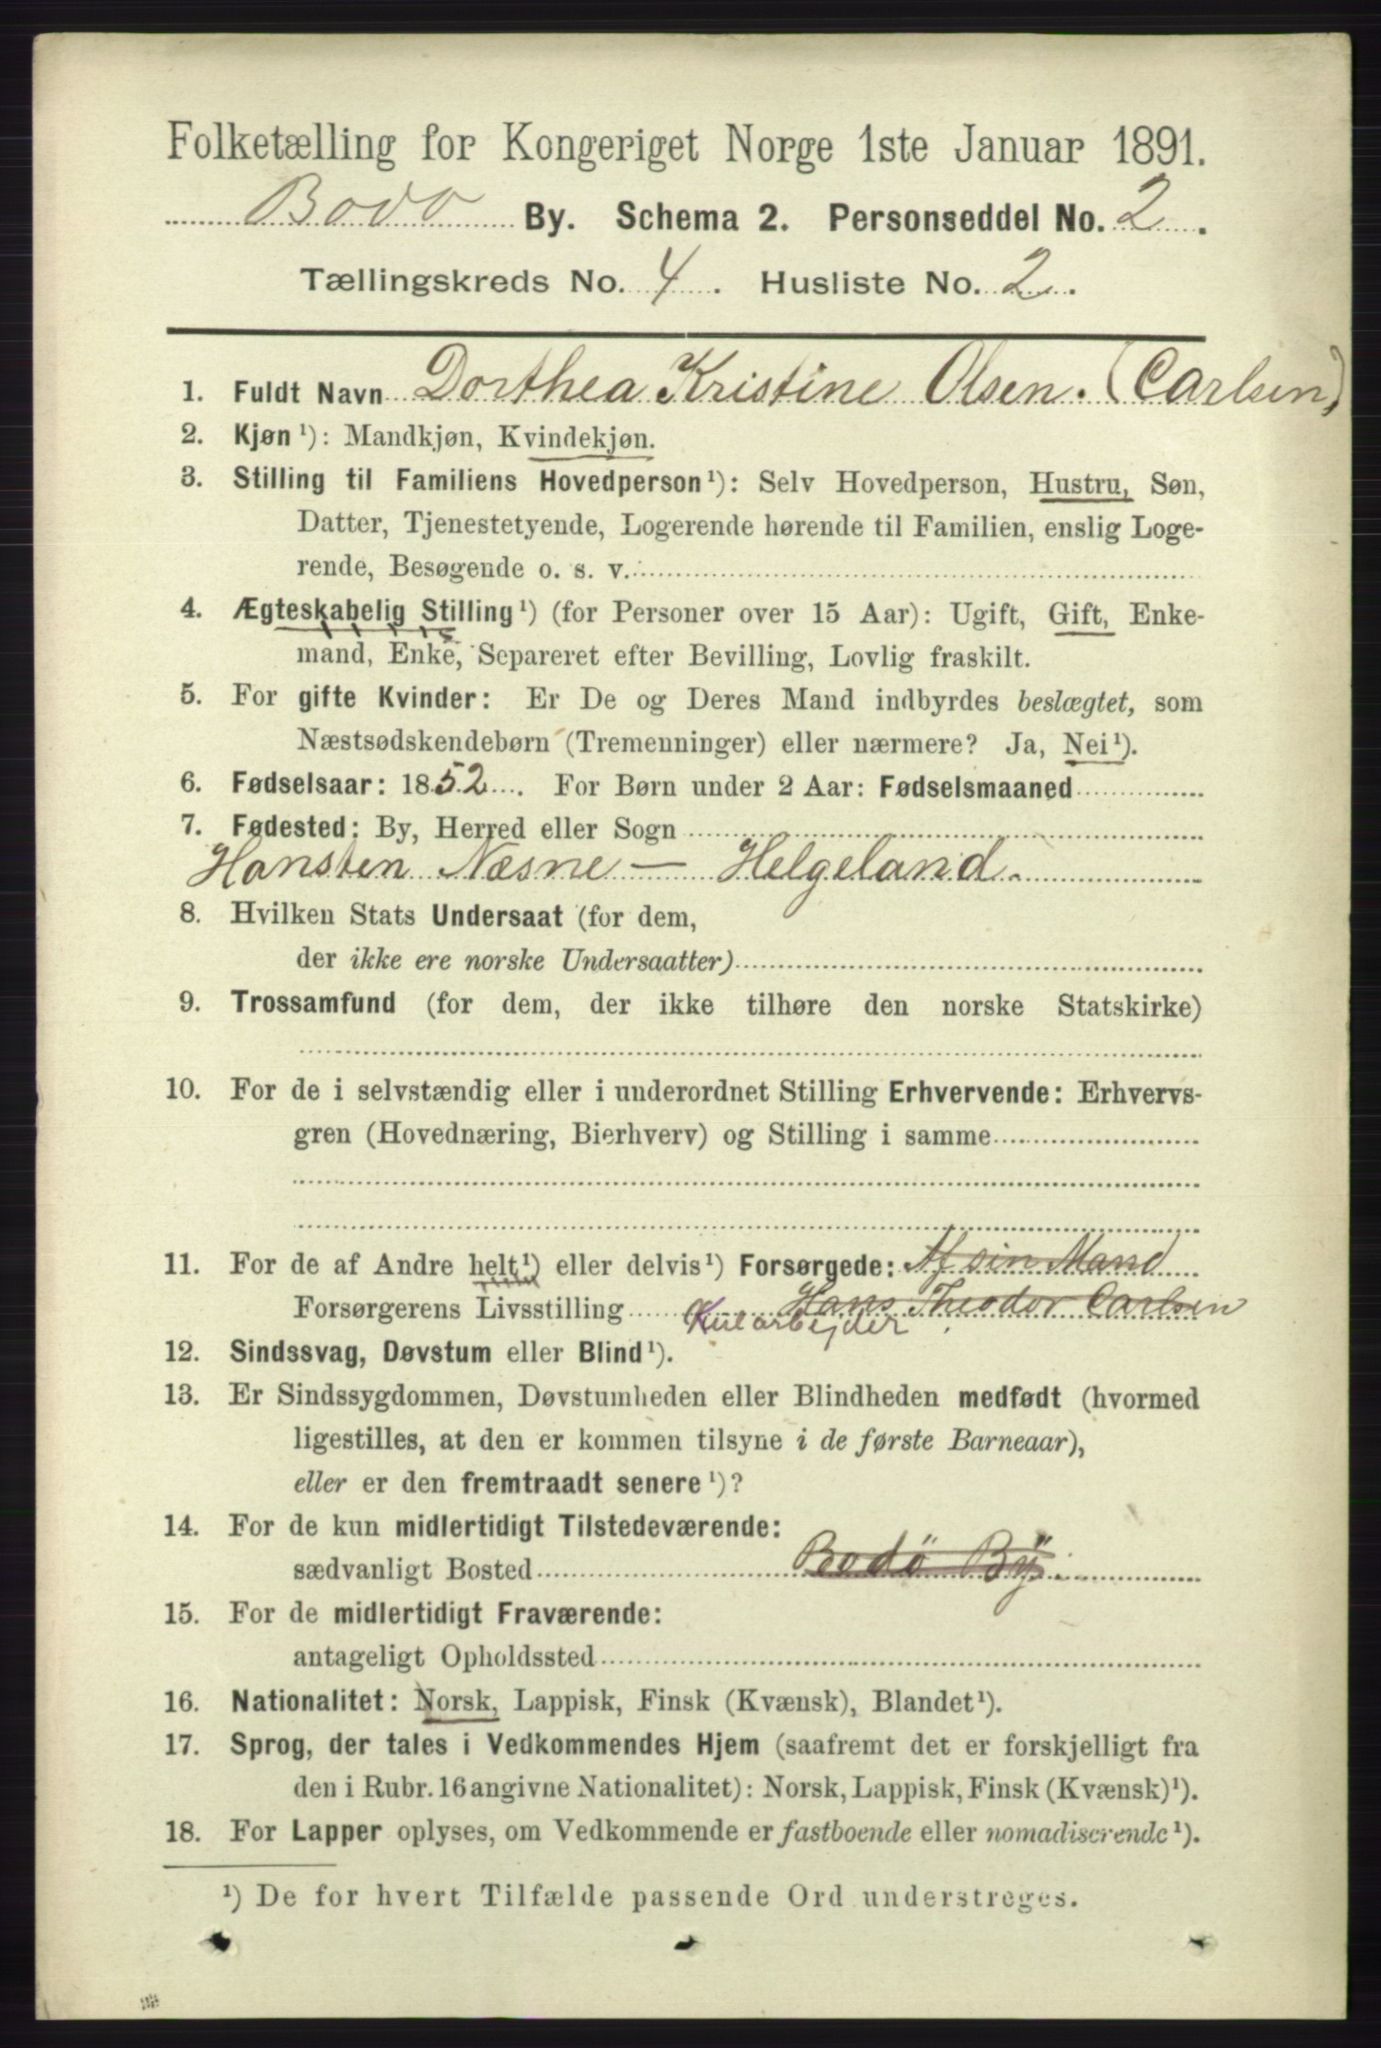 Folketælling for Kongeriget Norge 1ste Januar 1891.
Bodo By. Schema 2. Personseddel No. 2.
Tællingskreds No. 4. Husliste No. 2.
1. Fuldt Navn Dorthea Kristine Olsen. (Carlsen)
2. Kjøn ¹): Mandkjøn, Kvindekjøn.
3. Stilling til Familiens Hovedperson ¹): Selv Hovedperson, Hustru, Søn,
Datter, Tjenestetyende, Logerende hørende til Familien, enslig Loge-
rende, Besøgende o. s. v.
4. Ægteskabelig Stilling ¹) (for Personer over 15 Aar): Ugift, Gift, Enke-
mand, Enke, Separeret efter Bevilling, Lovlig fraskilt.
5. For gifte Kvinder: Er De og Deres Mand indbyrdes beslægtet, som
Næstsødskendebørn (Tremenninger) eller nærmere? Ja, Nei ¹).
6. Fødselsaar: 1852. For Børn under 2 Aar: Fødselsmaaned
7. Fødested: By, Herred eller Sogn
Næsne — Helgeland.
8. Hvilken Stats Undersaat (for dem,
der ikke ere norske Undersaatter)
9. Trossamfund (for dem, der ikke tilhøre den norske Statskirke)
10. For de i selvstændig eller i underordnet Stilling Erhvervende: Erhvervs-
gren (Hovednæring, Bierhverv) og Stilling i samme
11. For de af Andre helt ¹) eller delvis ¹) Forsørgede: Af sin Mand
Forsørgerens Livsstilling Hans Theodor Carlsen
Kularbejder
12. Sindssvag, Døvstum eller Blind ¹).
13. Er Sindssygdommen, Døvstumheden eller Blindheden medfødt (hvormed
ligestilles, at den er kommen tilsyne i de første Barneaar),
eller er den fremtraadt senere ¹)?
14. For de kun midlertidigt Tilstedeværende:
sædvanligt Bosted Bodö By.
15. For de midlertidigt Fraværende:
antageligt Opholdssted
16. Nationalitet: Norsk, Lappisk, Finsk (Kvænsk), Blandet ¹).
17. Sprog, der tales i Vedkommendes Hjem (saafremt det er forskjelligt fra
den i Rubr. 16 angivne Nationalitet): Norsk, Lappisk, Finsk (Kvænsk) ¹).
18. For Lapper oplyses, om Vedkommende er fastboende eller nomadiserende ¹).
¹) De for hvert Tilfælde passende Ord understreges.